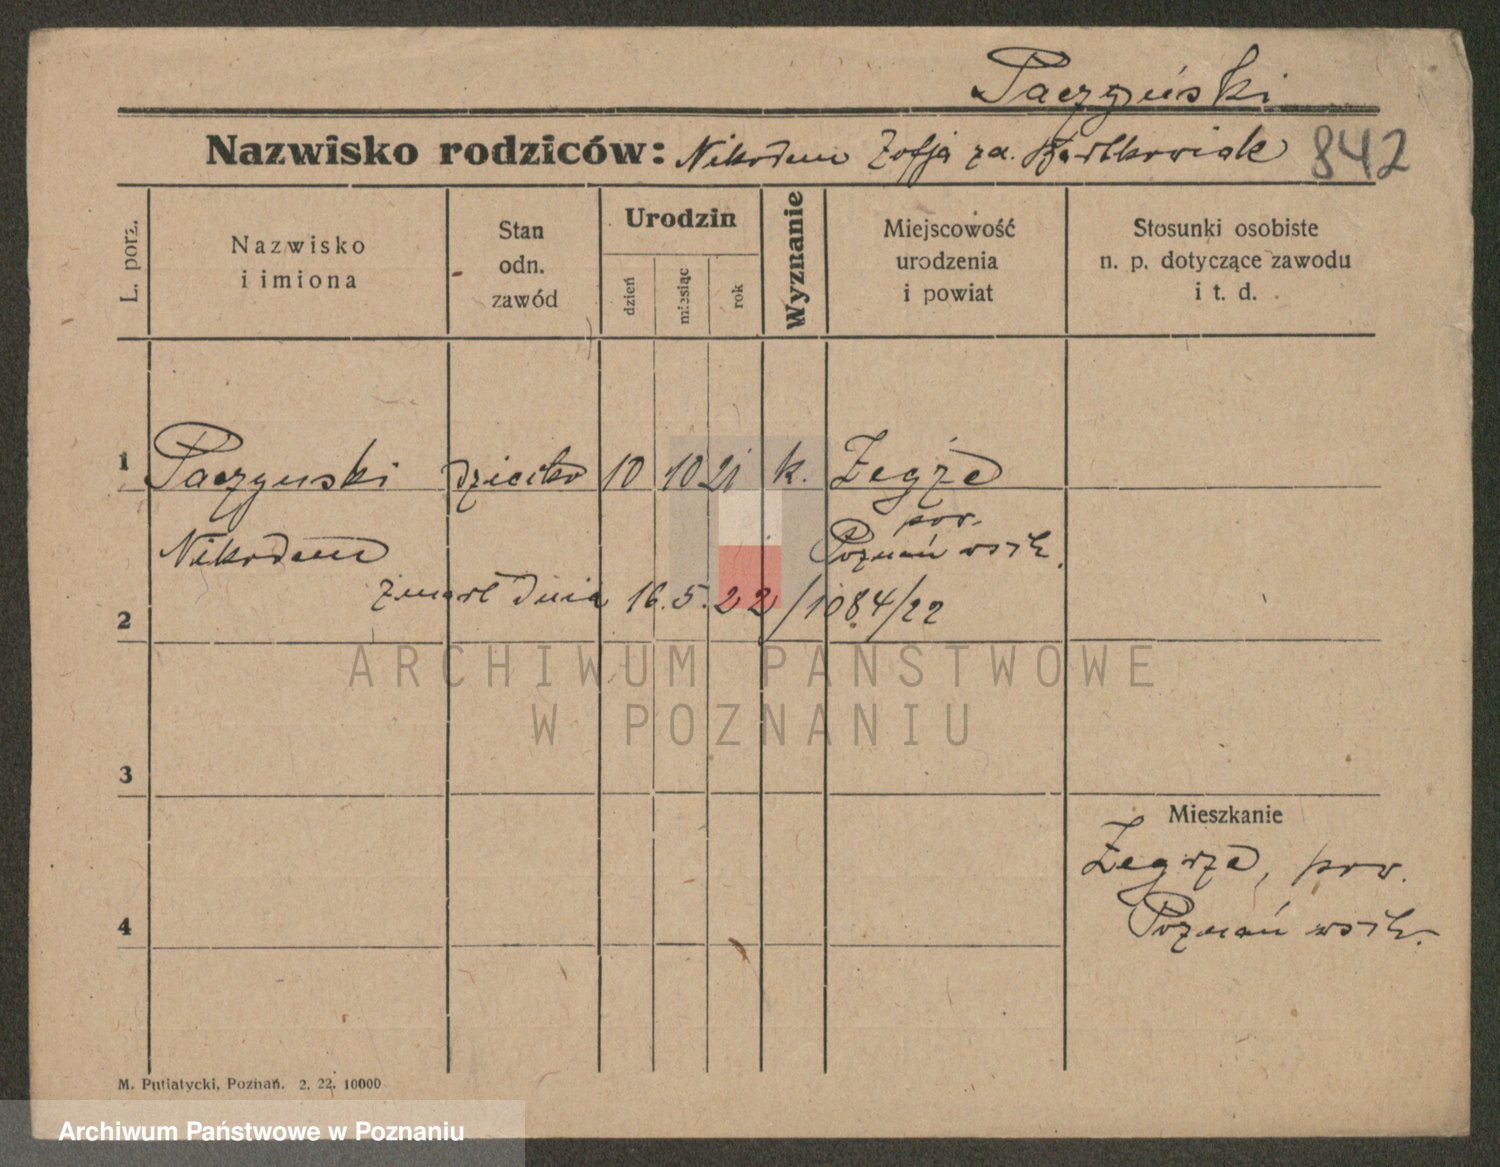 Paczyński
Nazwisko rodziców: Nikodem Zofja za. Bartkowiak 842
L. porz.
Nazwisko
i imiona
Stan
odn.
zawód
Urodzin
dzień
miesiąc
rok
Wyznanie
Miejscowość
urodzenia
i powiat
Stosunki osobiste
n. p. dotyczące zawodu
i t. d.
1 Paczynski dziecko 10 10 21 k. Zegże
Nikodem
pow.
Poznań wsch.
2 zmarł dnia 16.5.22/1084/22
ARCHIWUM PAŃSTWOWE
W POZNANIU
3
Mieszkanie
Zegrze, pow.
4 Poznań wsch.
M. Putiatycki, Poznań. 2. 22. 10000
Archiwum Państwowe w Poznaniu